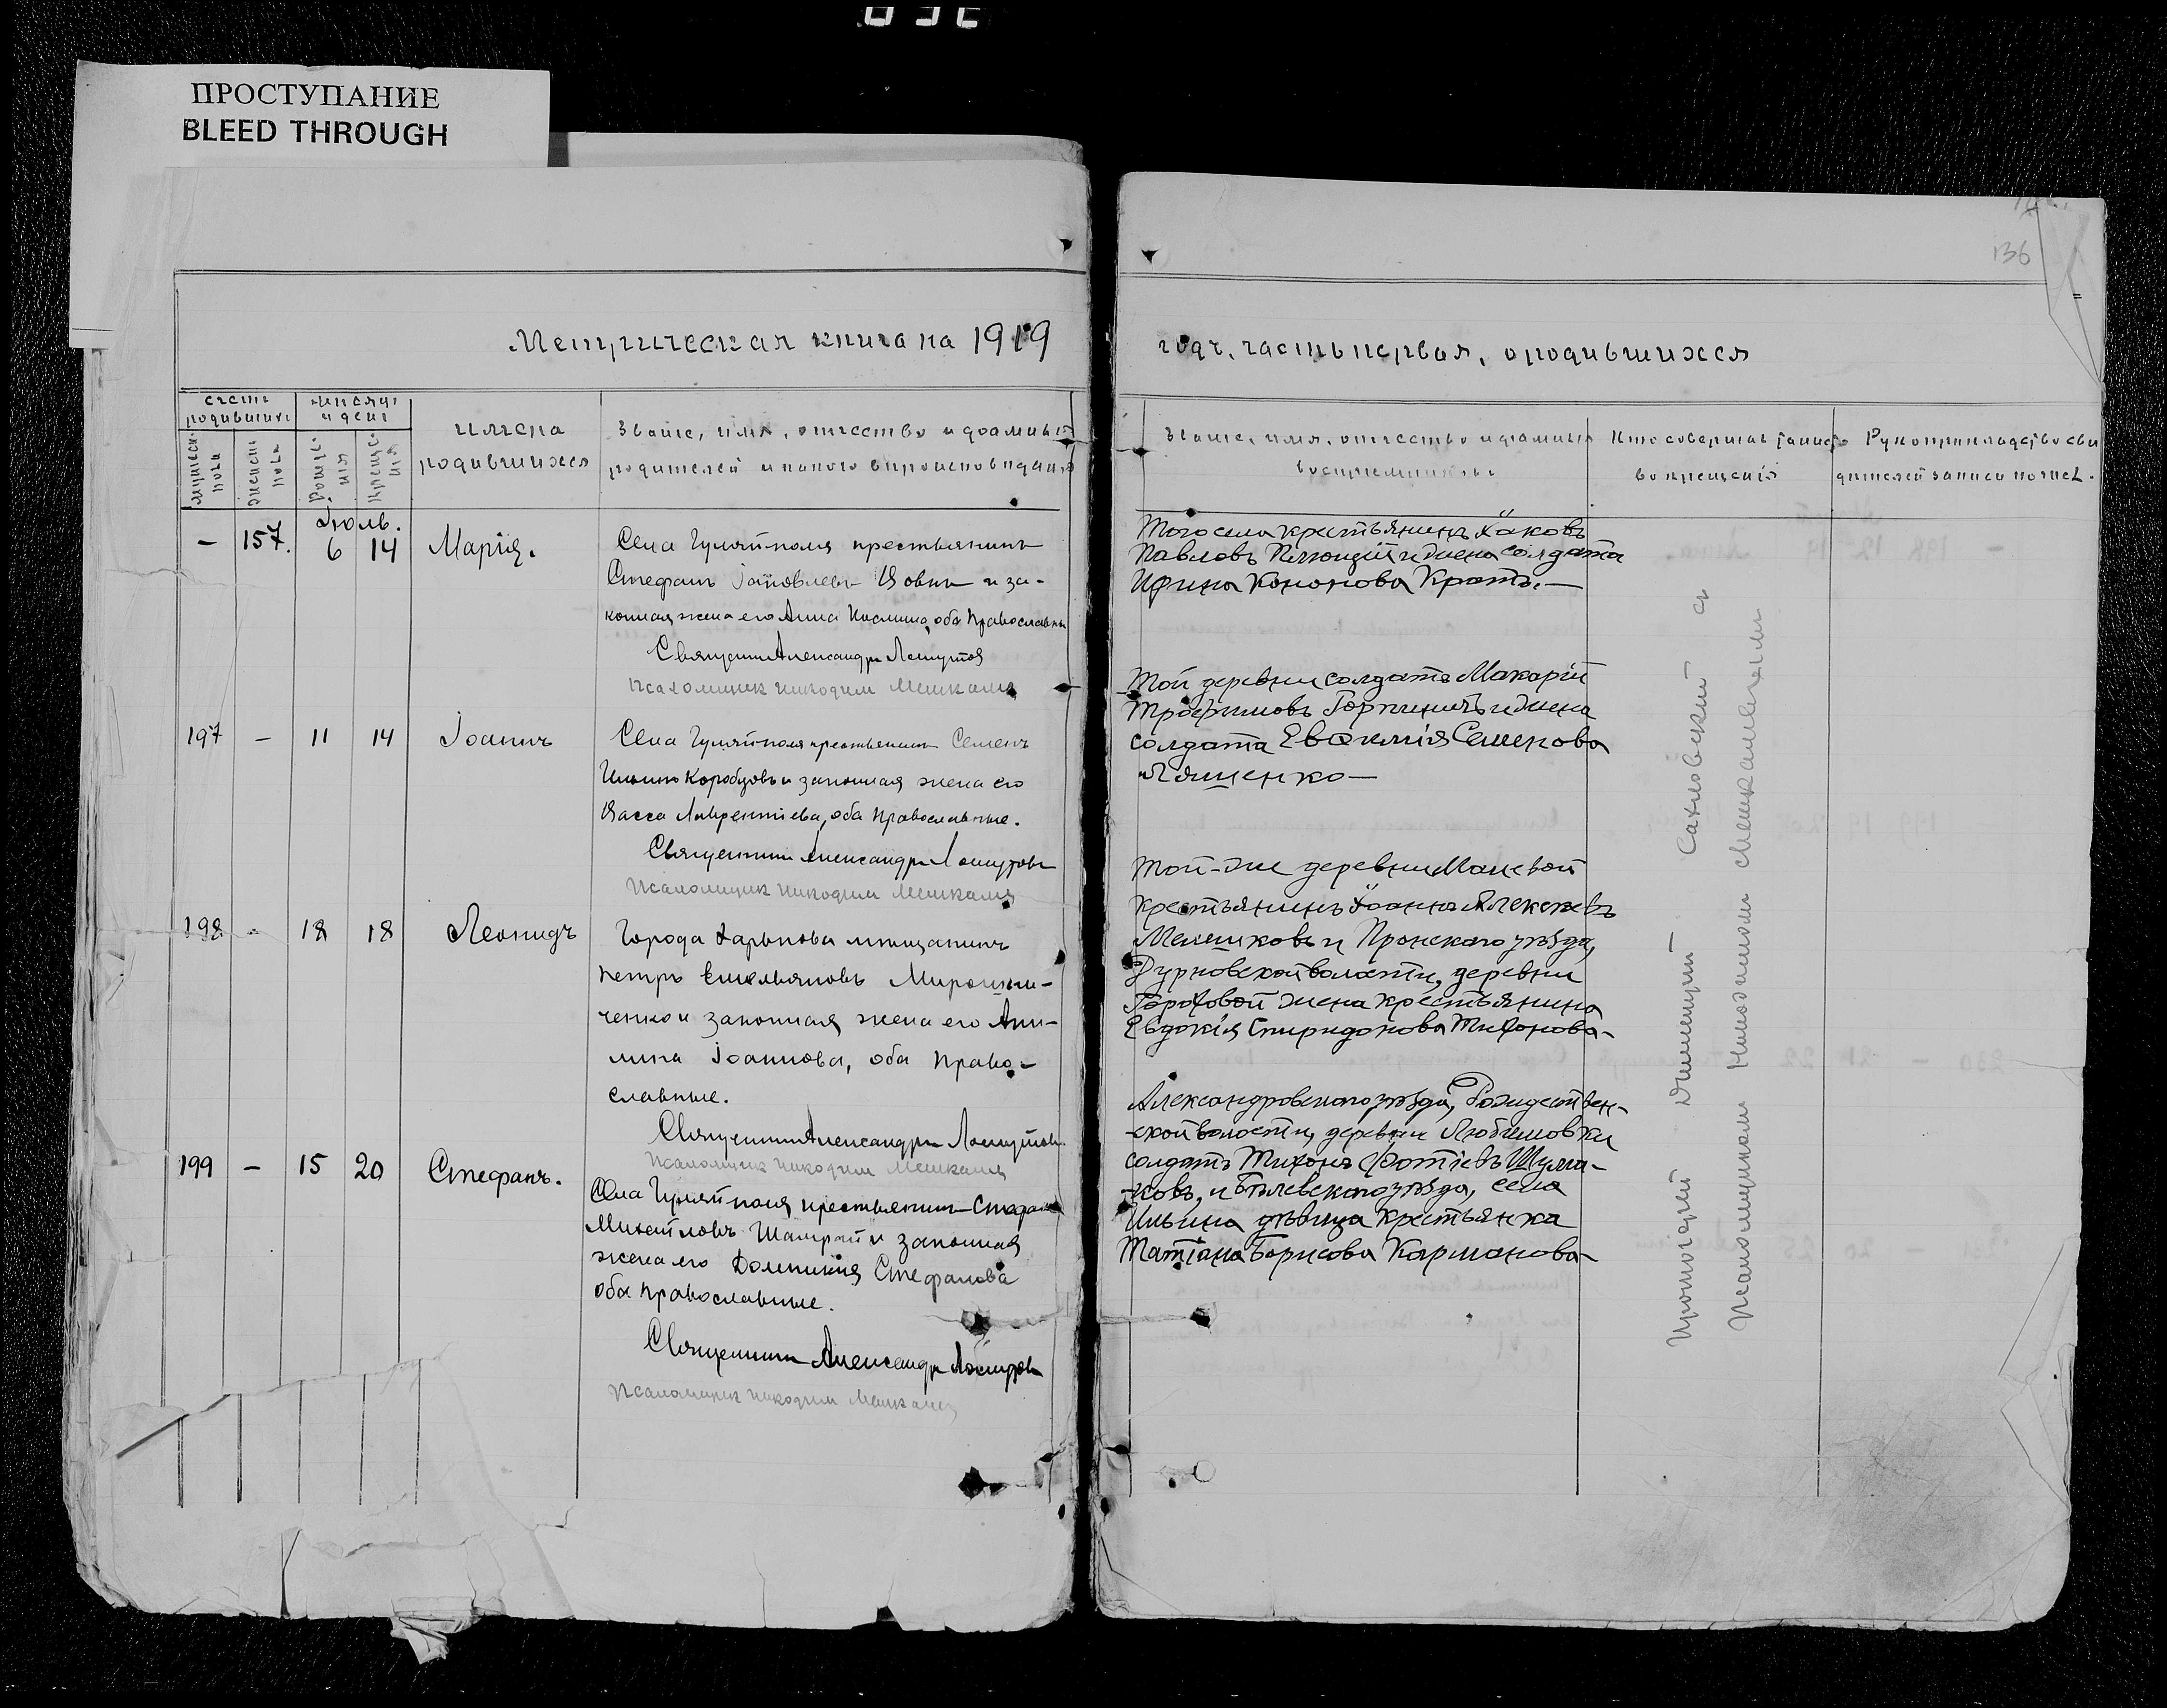 ПРОСТУПАНИЕ
BLEED THROUGH
136
Метрическая книга на 1919
годъ, часть первая, о родившихся
счетъ родившихся
мѣсяцъ и день
мужеск. пола
женск. пола
рожде-нія
креще-нія
имена родившихся
Званіе, имя, отчество и фамилія
родителей и какого вѣроисповѣданія
Званіе, имя, отчество и фамилія
воспріемниковъ
Кто совершалъ таинство
во крещенія
Рукоприкладство сви
дителей записи по жел.
Іюль.
— 157. 6 14 Марія.
Села Гуляйполя крестьянинъ
Стефанъ Іаковлевъ Вовкъ и за-
конная жена его Анна Космина, оба Православны
Священникъ Александръ Лошутовъ
Псаломщикъ Никодим Мешкалей
Того села крестьянинъ Іаковъ
Павловъ и жена солдата
Ирина Кононова Кратъ.—
197 — 11 14 Іоаннъ
Села Гуляйполя крестьянинъ Семенъ
Ильинъ Коробцовъ и законная жена его
Васса Лаврентіева, оба православные.
Священникъ Александръ Лошутовъ
Псаломщик Никодим Мешкалей
Той деревни солдатъ Макарій
Трофимовъ Горпиничъ и жена
солдата Евфимія Семенова
Лященко—
198 - 18 18 Леонидъ
Города Харькова мѣщанинъ
Петръ Емельяновъ Мирошни-
ченко и законная жена его Аки-
лина Іоаннова, оба право-
славные.
Священникъ Александръ Лошутовъ
Псаломщик Никодим Мешкалей
Той-же деревни
крестьянинъ Іоаннъ Алексѣевъ
Мелешковъ и Пронского уѣзда,
Дурновской волости, деревни
Гороховой жена крестьянина
Евдокія Спиридонова Тихонова-
199 — 15 20 Стефанъ.
Села Гуляйполя крестьянинъ Стефанъ
Михайловъ Шамрай и законная
жена его Домникія Стефанова
оба православные.
Священникъ Александръ Лошутовъ
Псаломщик Никодим Мешкалей
Александровского уѣзда, Рождествен-
-ской волости, деревни Любимовки
солдатъ Тихонъ Фотіевъ Шума-
-ковъ, и Бѣлевского уѣзда, села
Ильина дѣвица крестьянка
Татіана Борисова Карманова-
Протоіерей Димитрій — Сахновскій съ
Псаломщикомъ Никодимомъ Мешкалевымъ